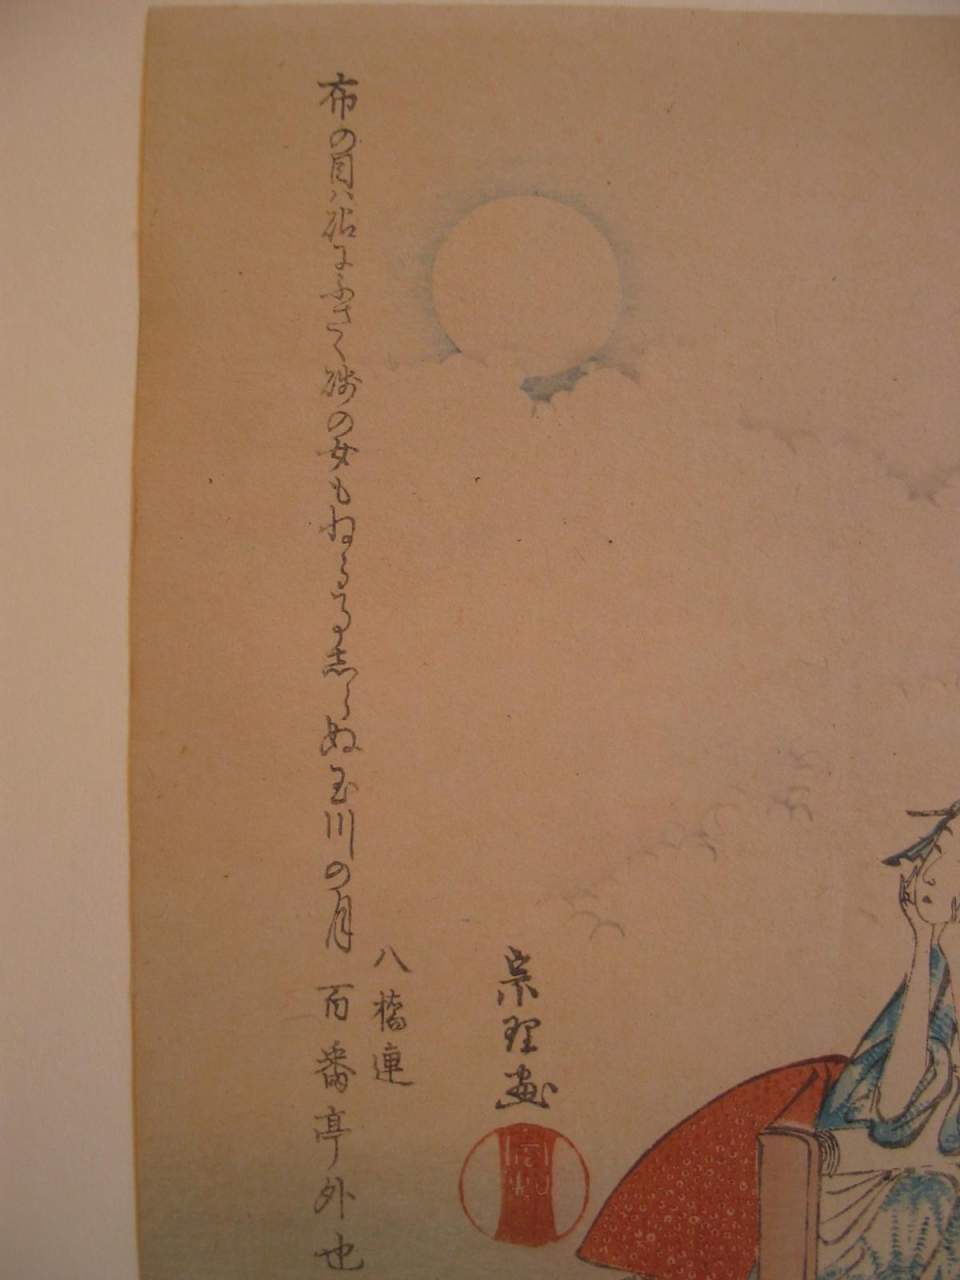 宗理画
八橋連
布の目ハ砧にふさく賤の女もねる事志らぬ玉川の月 百番亭外也